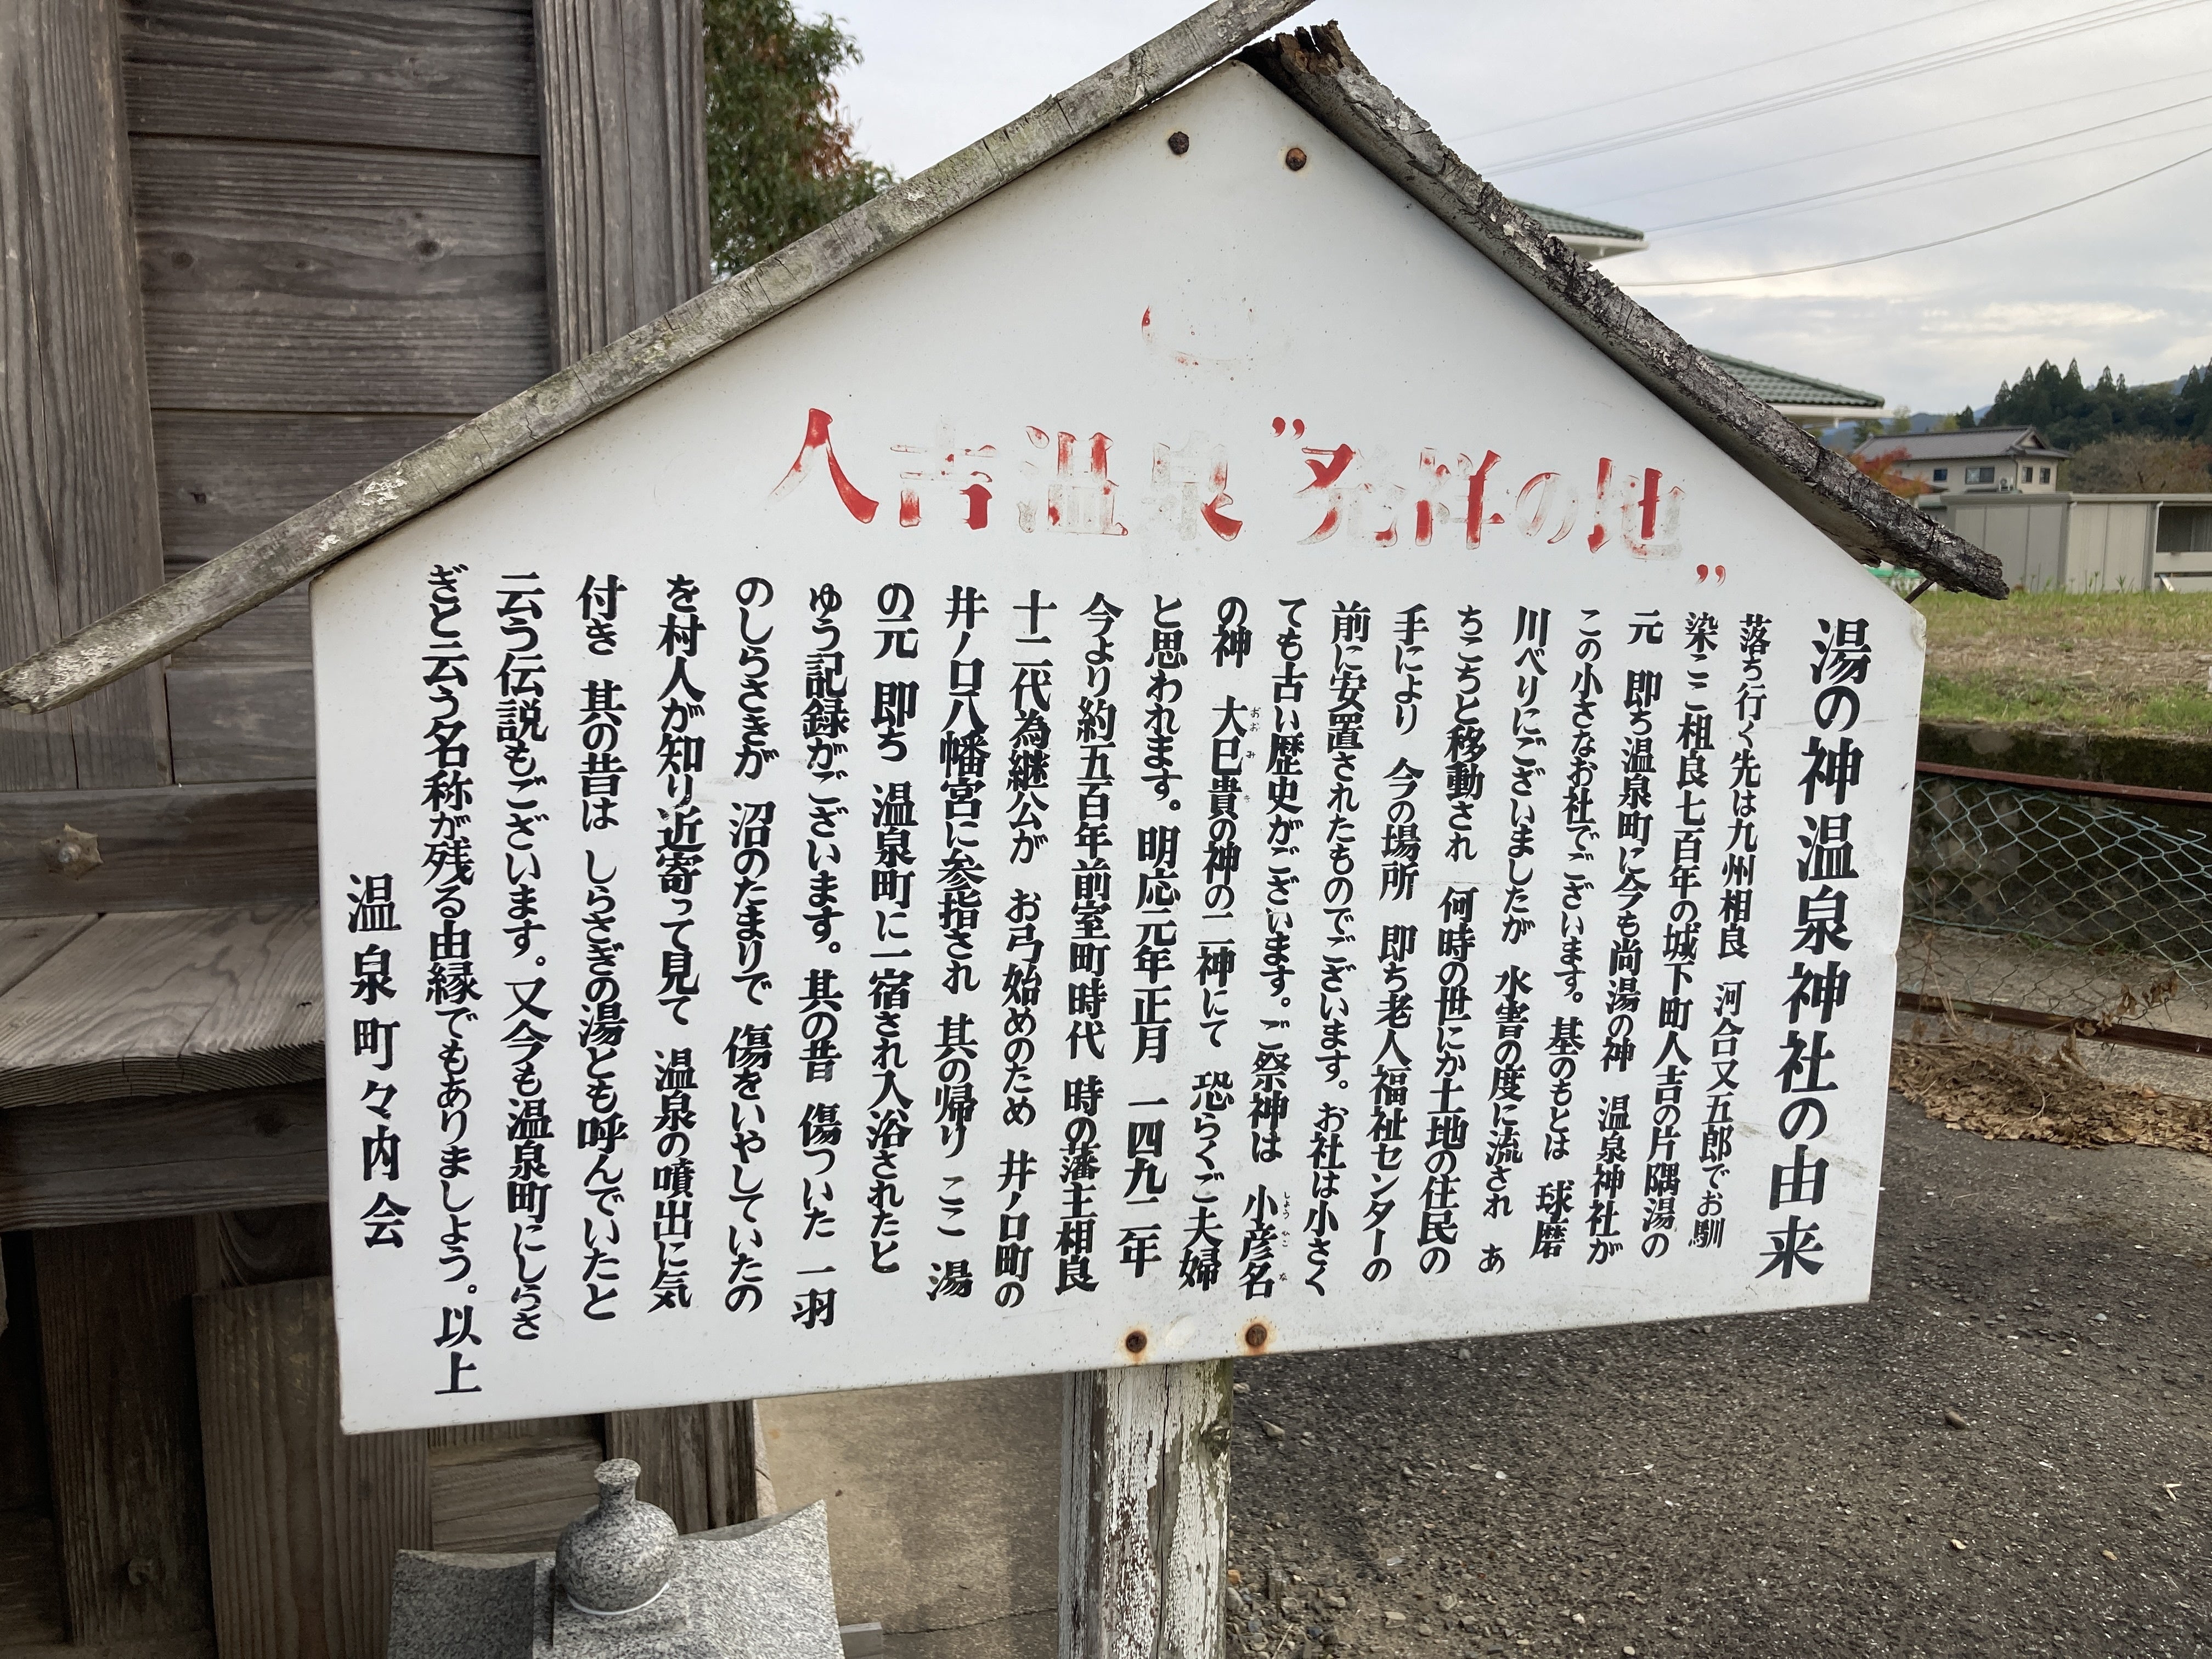 人吉温泉"発祥の地"
湯の神温泉神社の由来
落ち行く先は九州相良 河合又五郎でお馴
染ここ相良七百年の城下町人吉の片隅湯の
元 即ち温泉町に今も尚湯の神 温泉神社が
この小さなお社でございます。基のもとは 球磨
川べりにございましたが 水害の度に流され あ
ちこちと移動され 何時の世にか土地の住民の
手により 今の場所 即ち老人福祉センターの
前に安置されたものでございます。お社は小さく
ても古い歴史がございます。ご祭神は 小彦名
の神 大巳貴の神の二神にて 恐らくご夫婦
と思われます。明応元年正月 一四九二年
今より約五百年前室町時代 時の藩主相良
十二代為継公が お弓始めのため 井ノ口町の
井ノ口八幡宮に参指され 其の帰り ここ 湯
の元 即ち 温泉町に一宿され入浴されたと
ゆう記録がございます。其の昔 傷ついた 一羽
のしらさきが 沼のたまりで 傷をいやしていたの
を村人が知り近寄って見て 温泉の噴出に気
付き 其の昔は しらさぎの湯とも呼んでいたと
云う伝説もございます。又今も温泉町にしらさ
ぎと云う名称が残る由縁でもありましよう。以上
温泉町々内会